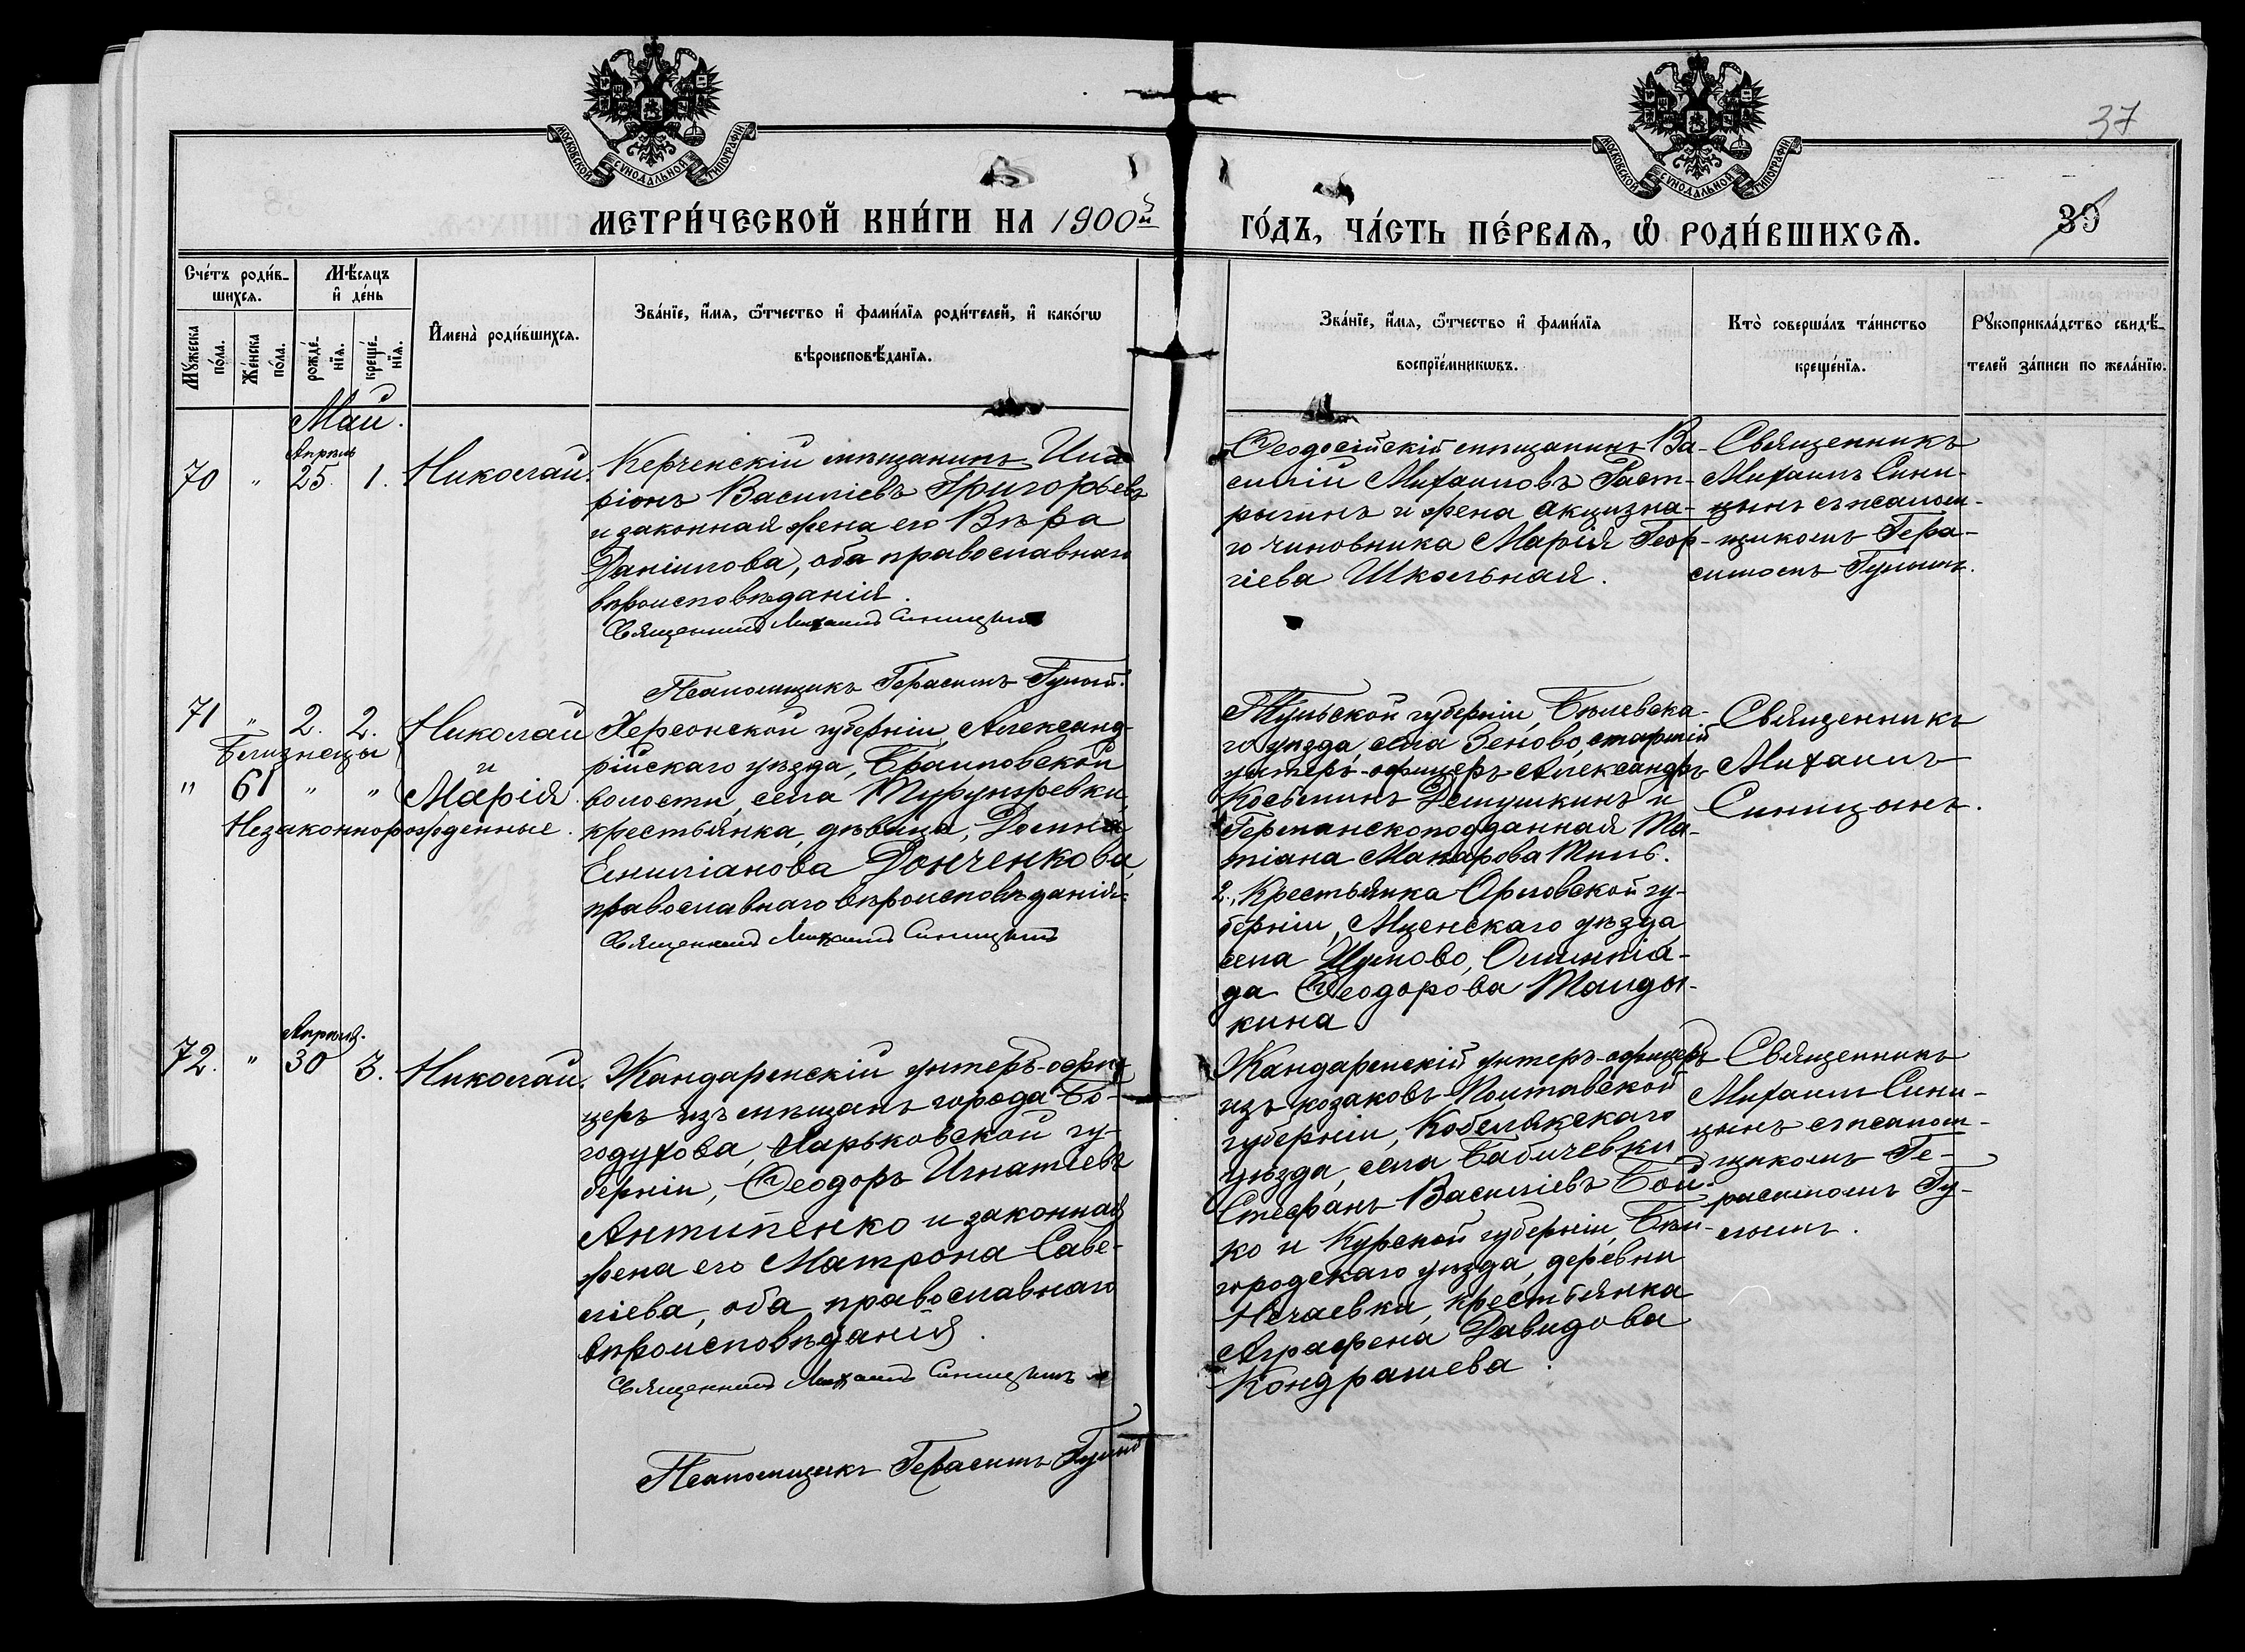 37
МОСКОВСКОЙ СѴНОДАЛЬНОЙ ТИПОГРАФІИ
МОСКОВСКОЙ СѴНОДАЛЬНОЙ ТИПОГРАФІИ
МЕТРИ́ЧЕСКОЙ КНИ́ГИ НА 1900й ГО́ДЪ, ЧА́СТЬ ПЕ́РВАЯ, Ѽ РОДИ́ВШИХСЯ.
39
Сче́тъ роди́в-
шихся.
Му́жеска по́ла.
Же́нска по́ла.
Мѣ́сяцъ
и де́нь
рожде́нїя.
креще́нїя.
Имена̀ роди́вшихся.
Зва́нїе, и́мя, ѻ́тчество и фами́лїя роди́телей, и како́гѡ
вѣроисповѣ́данїя.
Зва́нїе, и́мя, ѻ́тчество и фами́лїя
воспрїе́мникѡвъ.
Кто̀ соверша́лъ та́инство
креще́нїя.
Рукоприкла́дство свидѣ́-
телей за́писи по жела́нїю.
Май.
70 " Апрѣль 25. 1. Николай.
Керченскій мѣщанинъ Ила-
ріонъ Василіевъ Григорьевъ
и законная жена его Вѣра
Даніилова, оба православнаго
вѣроисповѣданія.
Священникъ Михаилъ Синицынъ
Псаломщикъ Герасимъ Гулый.
Ѳеодосійскій мѣщанинъ Ва-
силій Михаиловъ Раст-
рыгинъ и жена акцизна-
го чиновника Марія Геор-
гіева Школьная.
Священникъ
Михаилъ Сини-
цынъ съ псалом-
щикомъ Гера-
симомъ Гулымъ.
71 " 2. 2. Николай
Близнецы и
" 61 " " Марія.
Незаконнорожденные.
Херсонской губерніи, Александ-
рійскаго уѣзда, Браиловской
волости, села Турунзревки,
крестьянка, дѣвица, Домна
Емиліанова Донченкова,
православнаго вѣроисповѣданія.
Священникъ Михаилъ Синицынъ
Тульской губерніи, Бѣлевска-
го уѣзда, села Зеново, старшій
унтеръ-офицеръ Александръ
Косьминъ Демушкинъ и
Германскоподданная Та-
тіана Макарова Тиль.
2., Крестьянка Орловской гу-
берніи, Мценскаго уѣзда
села Шумово, Олимпіа-
да Ѳеодорова Талды-
кина
Священникъ
Михаилъ
Синицынъ.
72. " Апрѣля. 30 3. Николай.
Жандармскій унтеръ-офи-
церъ изъ мѣщанъ города Бо-
годухова, Харьковской гу-
берніи, Ѳеодоръ Игнатіевъ
Антипенко и законная
жена его Матрона Саве-
ліева, оба православнаго
вѣроисповѣданія.
Священникъ Михаилъ Синицынъ
Псаломщикъ Герасимъ Гулый
Жандармскій унтеръ-офицеръ
изъ козаковъ Полтавской
губерніи, Кобелякскаго
уѣзда, села Бабичевки
Стефанъ Василіевъ Бой-
ко и Курской губерніи, Бѣл-
городскаго уѣзда, деревни
Нечаевки, крестьянка
Аграфена Давидова
Кондрашева.
Священникъ
Михаилъ Сини-
цынъ съ псалом-
щикомъ Ге-
расимомъ Гу-
лымъ.